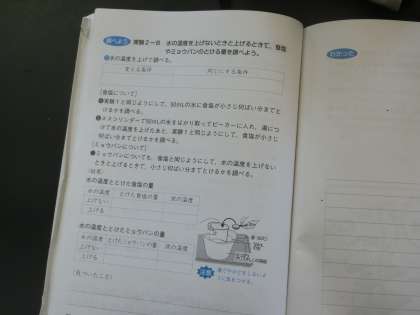 調べよう 実験2-B 水の温度を上げないときと上げるときで、食塩
やミョウバンのとける量を調べよう。
水の温度を上げて調べる。
変える条件 同じにする条件
[食塩について]
実験1と同じようにして、50mLの水に食塩が小さじ何ばい分まで
とけるかを調べる。
メスシリンダーで50mLの水をはかり取ってビーカーに入れ、湯につ
けて水の温度を上げたあと、実験1と同じようにして、食塩が小さじ
何ばい分までとけるかを調べる。
[ミョウバンについて]
ミョウバンについても、食塩と同じようにして、水の温度を上げない
ときと上げるときで、小さじ何ばい分までとけるかを調べる。
水の温度ととけた食塩の量
水の温度 とけた食塩の量 液の温度
上げない
上げる
水の温度ととけたミョウバンの量
水の温度 とけたミョウバンの量 液の温度
上げない
上げる
(気づいたこと)
注意
わかった